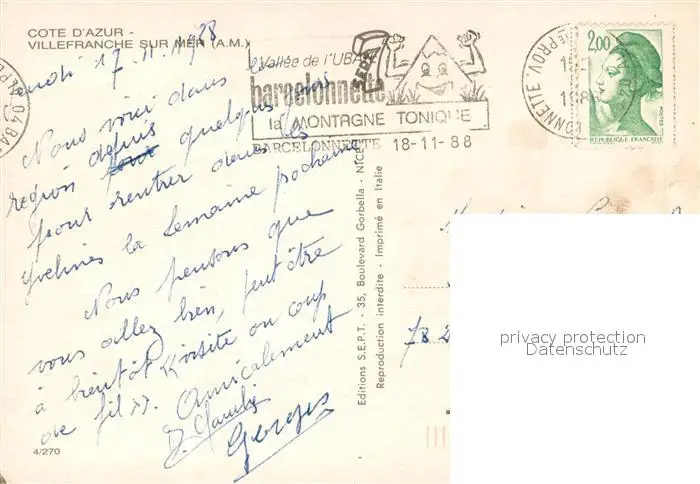 COTE D'AZUR -
VILLEFRANCHE SUR MER (A.M.)
17.11.1988
Nous voici dans la
region depuis quelques jours
pour rentrer dans les
Yvelines la semaine prochaine
Nous pensons que
vous allez bien, peut être
à bientôt "visite ou coup
de fil". Amicalement
Georges
4/270
Vallée de l'UBAYE
barcelonnette
la MONTAGNE TONIQUE
BARCELONNETTE 18-11-88
04 BA
2,00
POSTES
REPUBLIQUE FRANÇAISE
Editions S.E.P.T. - 35, Boulevard Gorbella - NICE
Reproduction interdite - Imprimé en Italie
78
privacy protection
Datenschutz